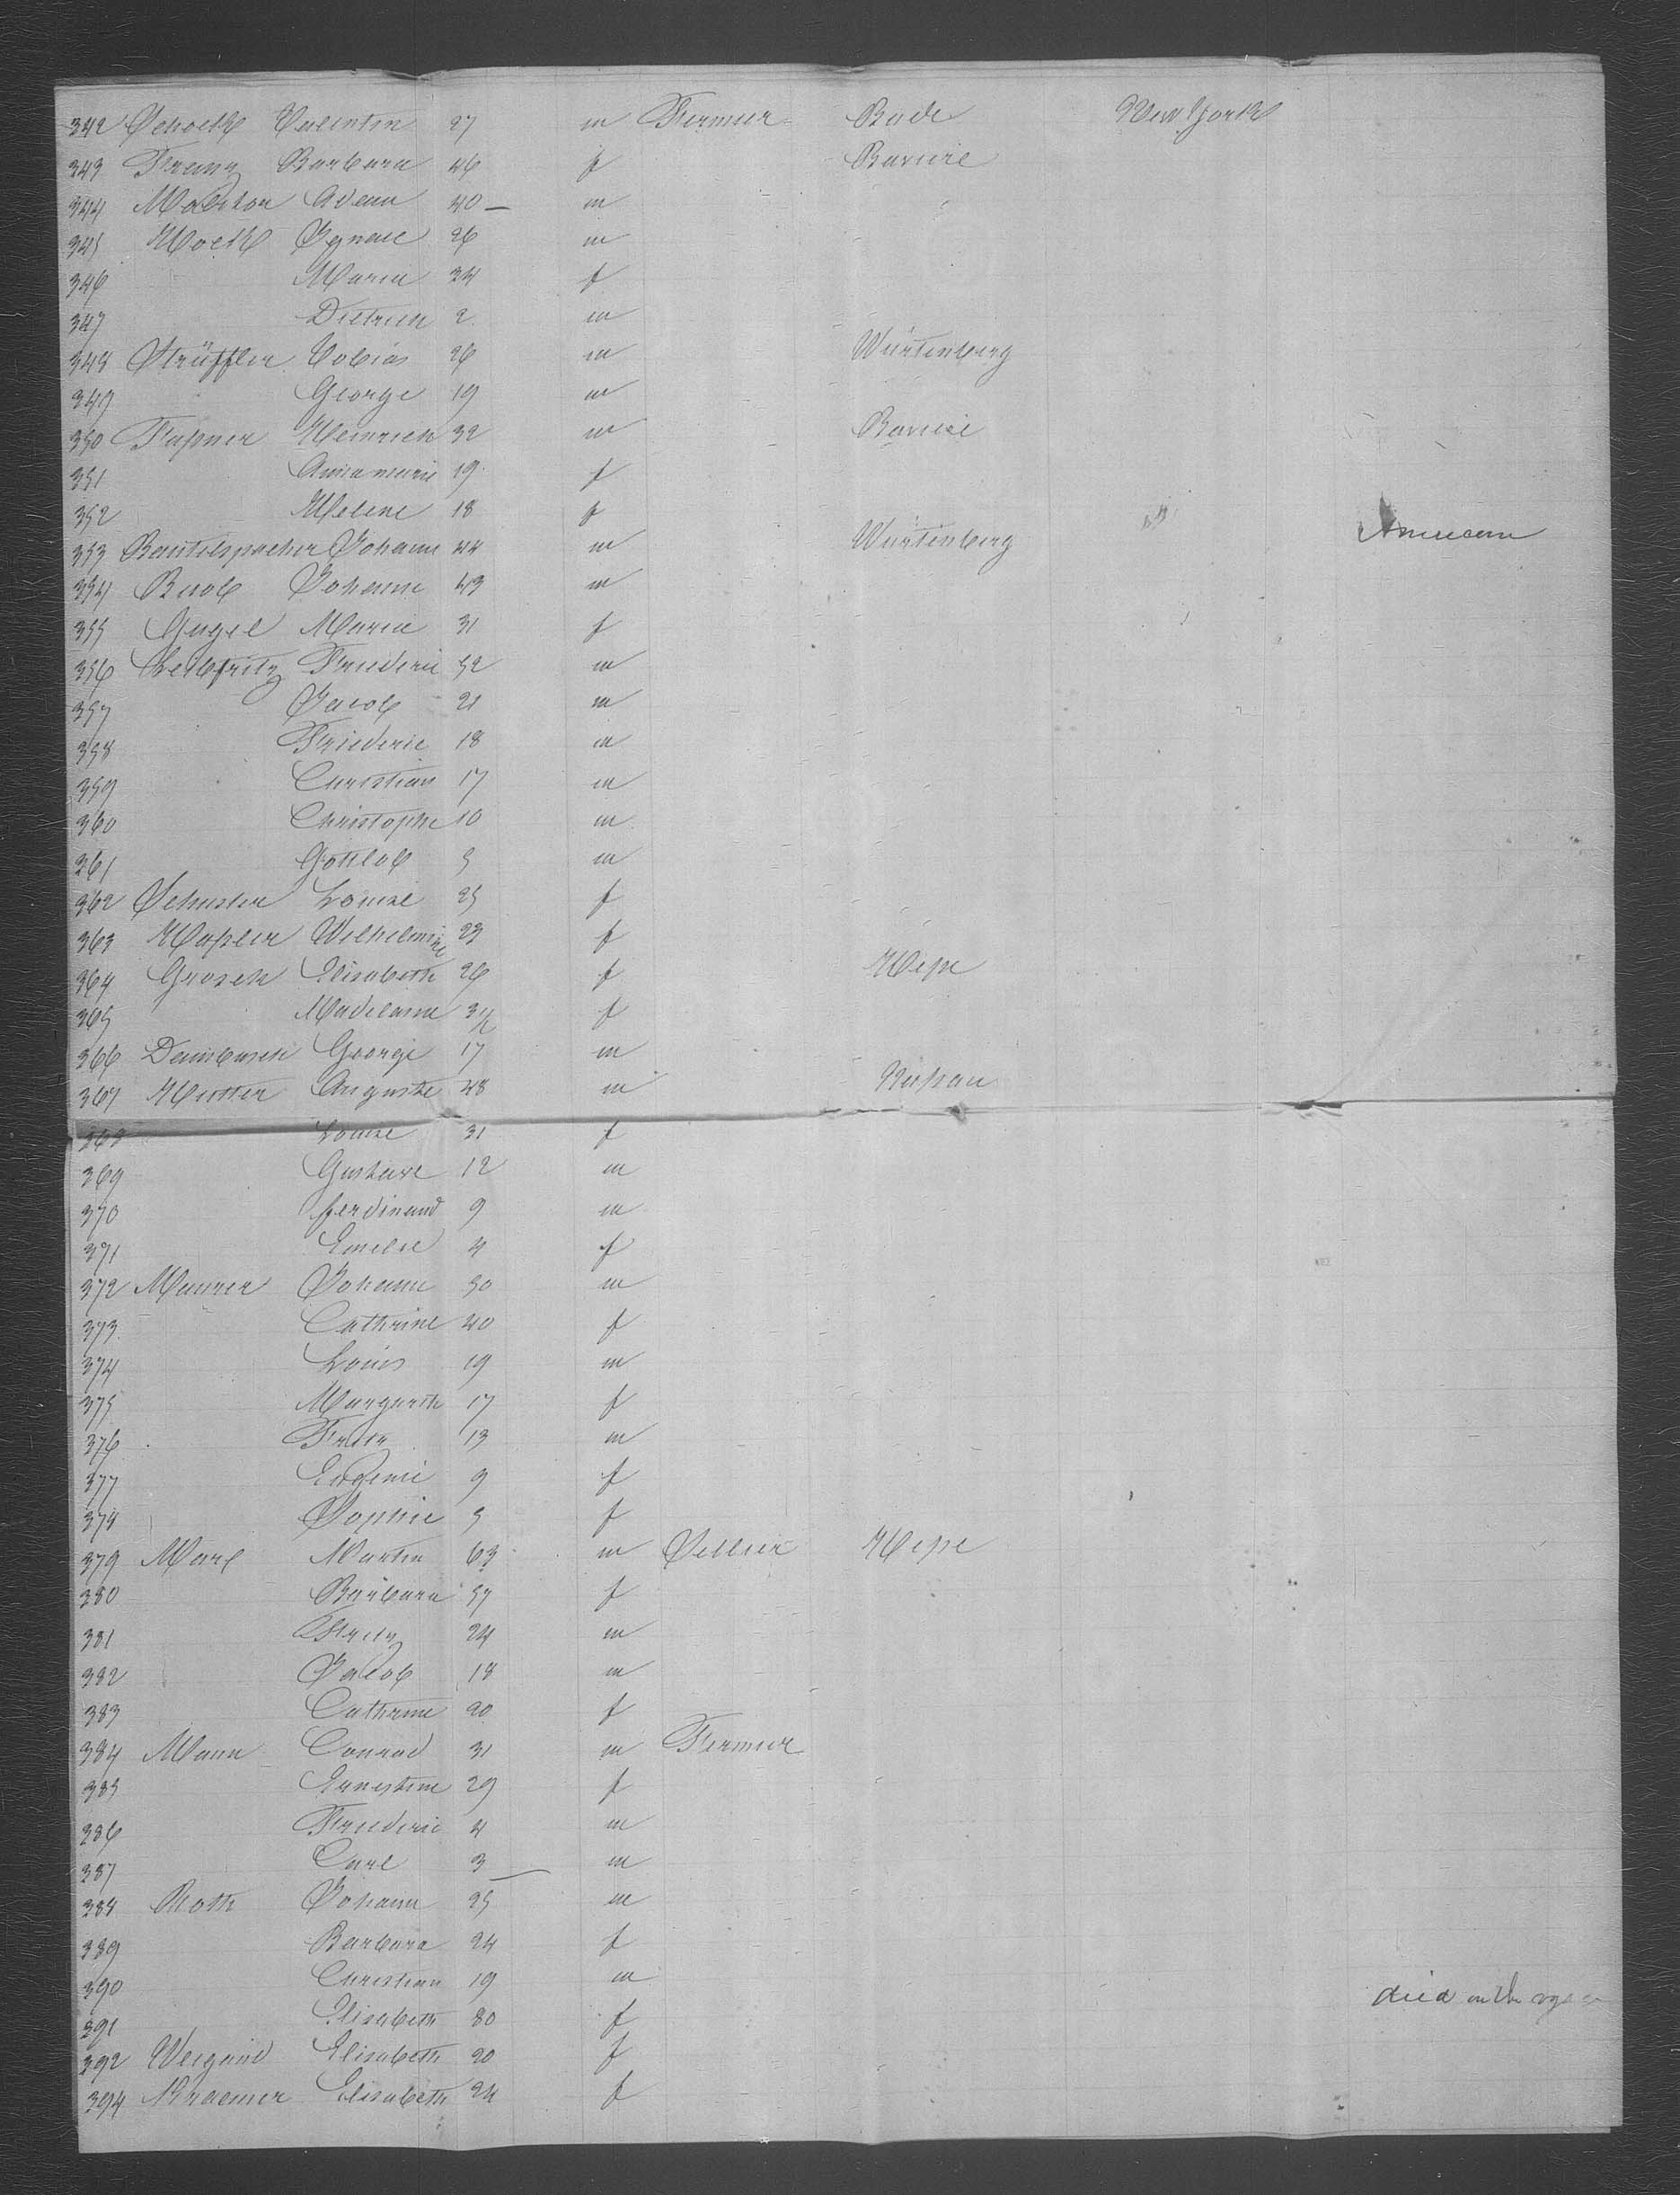 342 Schoelk Valentin 27 m Fermier Bade New York
343 Franz Barbara 46 f Baviere
344 Adam 40 — m
345 Hoelk Ignace 26 m
346 Maria 24 f
347 Dietrich 2 m
348 Strüffler Tobias 26 m Würtenberg
349 George 19 m
350 Faßner Heinrich 32 m Baviere
351 Annamarie 19 f
352 Helene 18 f
353 Beutelspacher Johann 44 m Würtenberg American
354 Bisob Johann 43 m
355 Gugel Maria 31 f
356 Leibfritz Friederic 52 m
357 Jacob 21 m
358 Friederic 18 m
359 Christian 17 m
360 Christophe 10 m
361 Gottlob 5 m
362 Schuster Louise 25 f
363 Haßler Wilhelmine 23 f
364 Grosch Elisabeth 26 f Heße
365 Madelaine f
366 Dambusch George 17 m
367 Hutter Auguste 48 m Naßau
368 Louise 31 f
369 Gustave 12 m
370 ferdinand 9 m
371 Emelie 4 f
372 Maurer Johann 50 m
373 Cathrine 40 f
374 Louis 19 m
375 Margareth 17 f
376 Fritz 13 m
377 Eugenie 9 f
378 Sophie 5 f
379 Marx Martin 63 m Sellier Heße
380 Barbara 57 f
381 Fritz 24 m
382 Jacob 18 m
383 Cathrine 20 f
384 Mann Conrad 31 m Fermier
385 Ernestine 29 f
386 Friederic 4 m
387 Carl 3 — m
388 Roth Johann 25 m
389 Barbara 24 f
390 Christian 19 m
391 Elisabeth 80 f died on the
392 Weigand Elisabeth 20 f
394 Kraemer Elisabeth 24 f